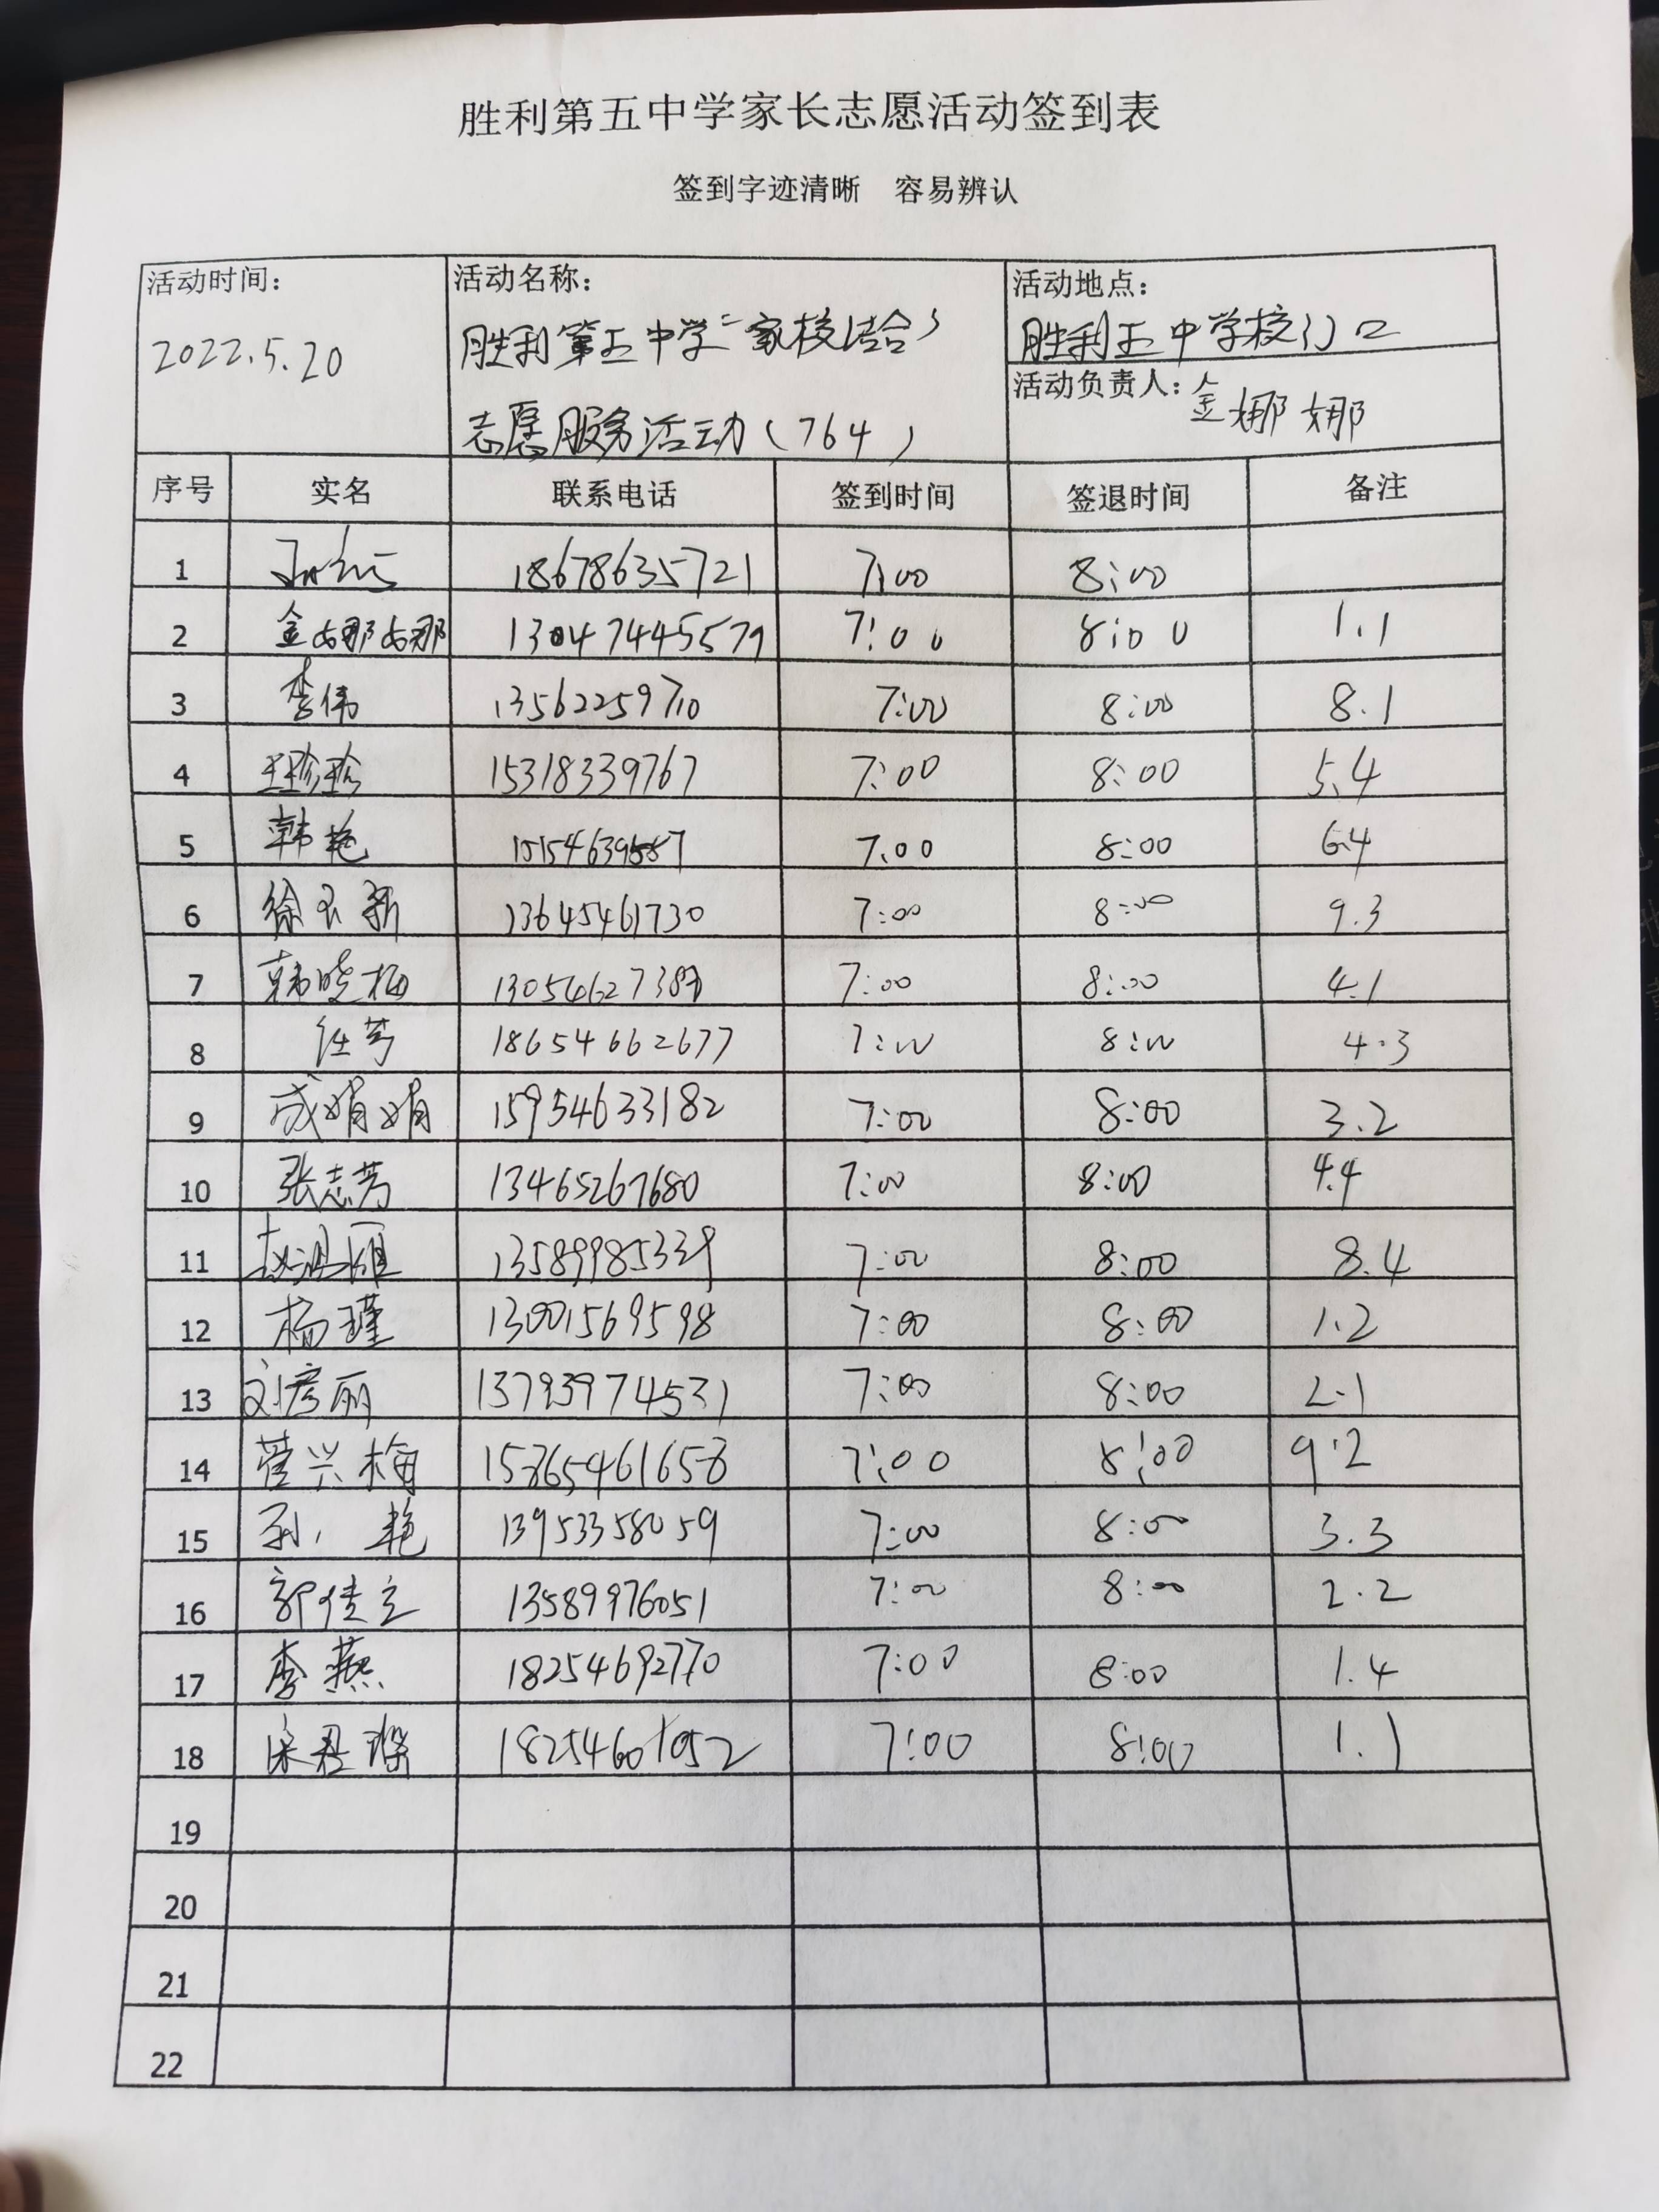 胜利第五中学家长志愿活动签到表
签到字迹清晰 容易辨认
活动时间：
2022.5.20
活动名称：
胜利第五中学“家校结合”
志愿服务活动（764）
活动地点：
胜利五中学校门口
活动负责人：金娜娜
序号 实名 联系电话 签到时间 签退时间 备注
1 18678635721 7:00 8:00
2 金娜娜 13047445579 7:00 8:00 1.1
3 李伟 13562259710 7:00 8:00 8.1
4 王珍珍 15318339767 7:00 8:00 5.4
5 韩艳 7:00 8:00 6.4
6 徐玉新 13645461730 7:00 8:00 9.3
7 韩晓梅 7:00 8:00 4.1
8 任芳 18654662677 7:00 8:00 4.3
9 成娟娟 15954633182 7:00 8:00 3.2
10 张志芳 13465267680 7:00 8:00 4.4
11 赵鸿雁 13589985339 7:00 8:00 8.4
12 杨瑾 13001569598 7:00 8:00 1.2
13 刘彦丽 13793974531 7:00 8:00 2.1
14 菅兴梅 15865461658 7:00 8:00 9.2
15 孙艳 13953358059 7:00 8:00 3.3
16 郭佳立 13589976051 7:00 8:00 2.2
17 李燕 18254692770 7:00 8:00 1.4
18 18254601052 7:00 8:00 1.1
19
20
21
22